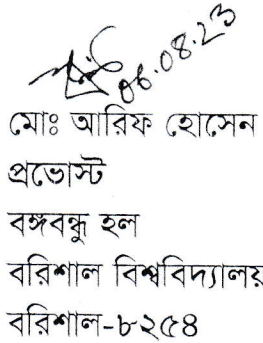 06.08.23
মোঃ আরিফ হোসেন
প্রভোস্ট
বঙ্গবন্ধু হল
বরিশাল বিশ্ববিদ্যালয়
বরিশাল-৮২৫৪